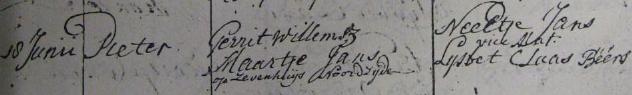 18 Junii Pieter
Gerrit Willemsz
Maartje Jans
op Zevenhuijs Noordzyde
Neeltje Jans
vice Mat.
Lysbet Claas Béérs